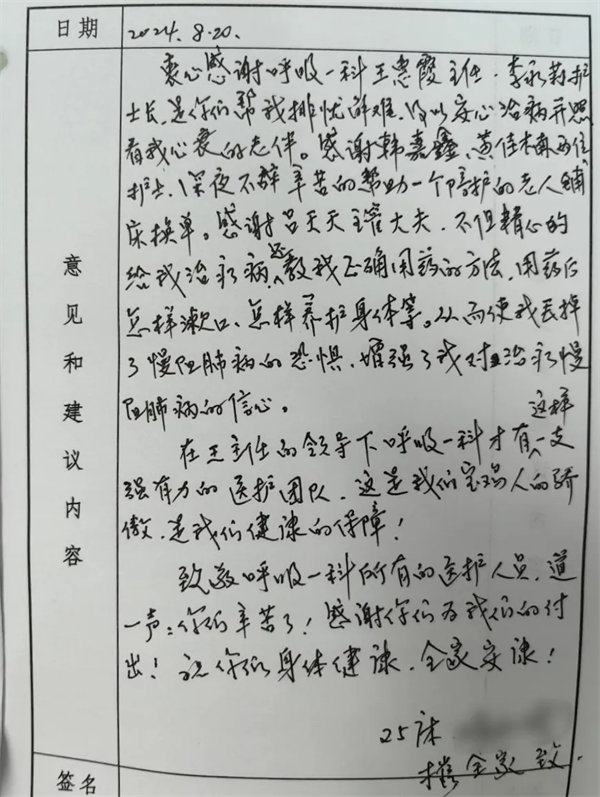 日期
2024.8.20.
意见和建议内容
衷心感谢呼吸一科王惠霞主任、李永莉护
士长,是你们帮我排忧解难,得以安心治病并照
看我心衰的老伴。感谢韩嘉鑫、黄佳楠两位
护士,深夜不辞辛苦的帮助一个陪护的老人铺
床换单。感谢吕天天主管大夫,不但精心的
给我治疗病,还教我正确用药的方法,用药后
怎样漱口、怎样养护身体等。从而使我丢掉
了慢阻肺病的恐惧,增强了我对治疗慢
阻肺病的信心。
在王主任的领导下呼吸一科才有这样一支
强有力的医护团队,这是我们宝鸡人的骄
傲,是我们健康的保障!
致敬呼吸一科所有的医护人员,道
一声:你们辛苦了!感谢你们为我们的付
出!祝你们身体健康,全家安康!
25床
全家 致
签名